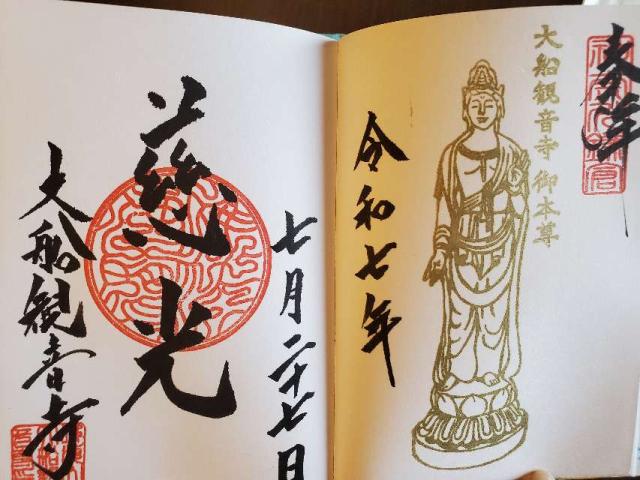 奉拝
大船観音寺御本尊
令和七年
七月二十七日
慈光
大船観音寺